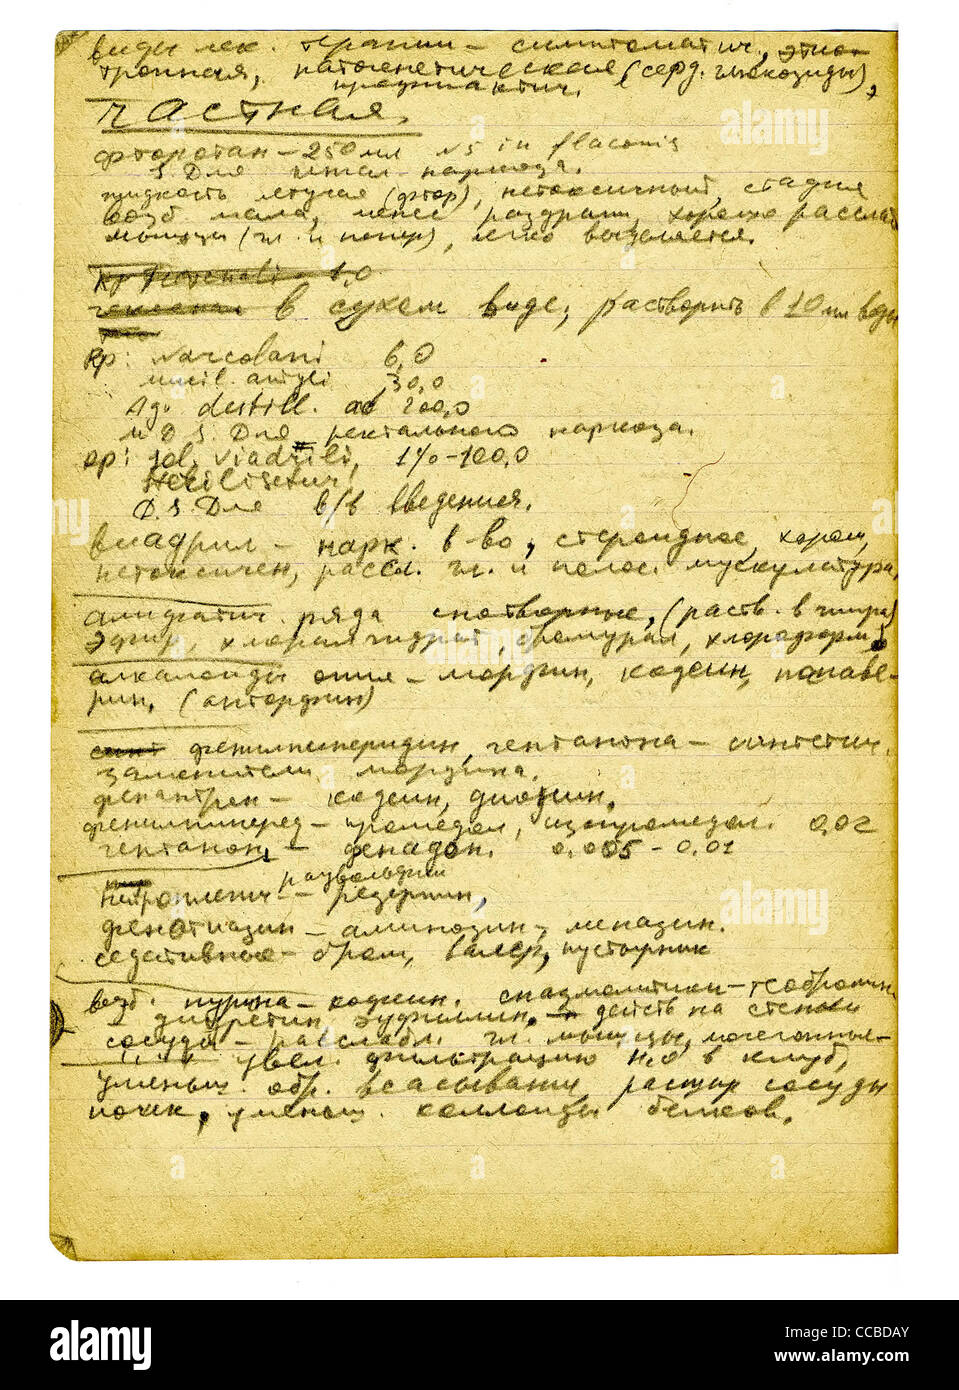 виды лек. терапии – симптоматич., этио-
тропная, патогенетическая (серд. гликозиды),
профилактич.
Частная.
фторотан – 250 мл N5 in flaconis
S. Для ингал. наркоза.
жидкость летучая (фтор), нетоксичный, стадия
возб. мала, менее раздраж, хорошо расслаб
мышцы (гл. и попер), легко выделяется.
Rp 1,0
в сухом виде, растворить в 10 мл воды
Rp: Narcolani 6,0
mucil. amyli 30,0
Aq. destill. ad 200,0
M D S. Для ректального наркоза.
Rp: Sol. Viadrili, 1% – 100,0
Sterilisetur!
D.S. Для в/в введения.
виадрил – нарк. в-во, стероидное, хорош,
нетоксичен, рассл. гл. и попер. мускулатура,
алифатич. ряда снотворные, (раств. в жирах)
эфир, хлоралгидрат, бромурал, хлороформ,
алкалоиды опия – морфин, кодеин, папаве-
рин,
синт фенилпиперидин, гептанона – синтетич.
заменители морфина.
фенантрен – кодеин, дионин.
фенилпиперид – промедол, изопромедол. 0,02
гептанон, – фенадон. 0,005 – 0,01
раувольфии
нейроплегич – резерпин,
фенотиазин – аминазин, мепазин.
седативные – бром, валер, пустырник
возб. пурина – кофеин. спазмолитики – теобромин.
– диуретин, эуфиллин, действ на стенки
сосуды – расслабл. гл. мышцы, мочегонные –
увел. фильтрацию H2O в клуб,
уменьш. обр. всасывание расшир сосуды
почек, уменьш. коллоиды белков.
alamy
alamy
Image ID: CCBDAY
www.alamy.com